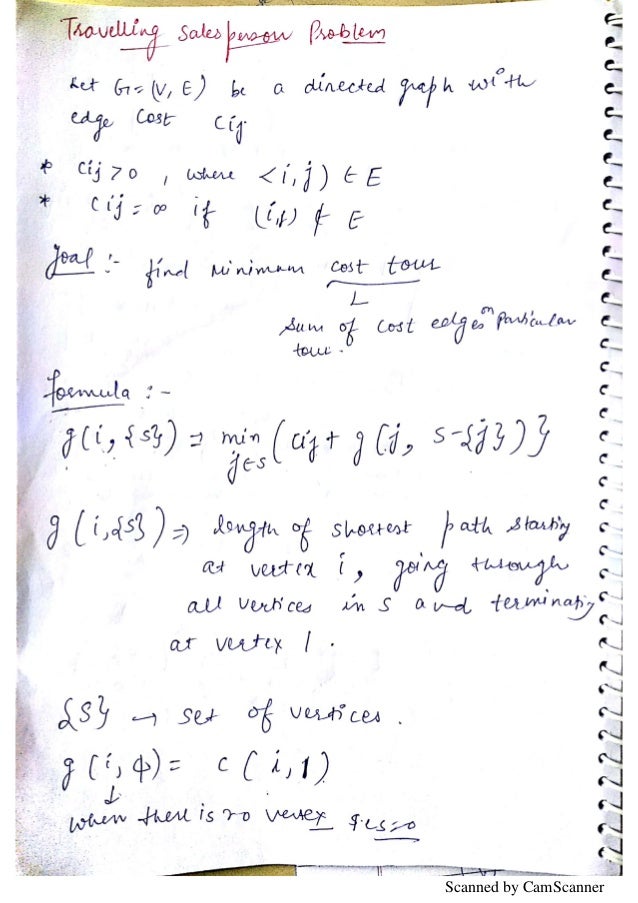 Travelling Salesperson Problem
Let G=(V, E) be a directed graph with
edge cost Cij
* Cij > 0 , where <i, j) ∈ E
* Cij = ∞ if (i,j) ∉ E
Goal :- find minimum cost tour
sum of cost edges on particular
tour.
formula :-
g(i, {s}) = min (Cij + g(j, s-{j})}
j∈s
g(i,{s}) ⇒ length of shortest path starting
at vertex i, going through
all vertices in s and terminating
at vertex 1.
{S} → set of vertices.
g(i, φ) = c(i,1)
↓
when there is no vertex
Scanned by CamScanner